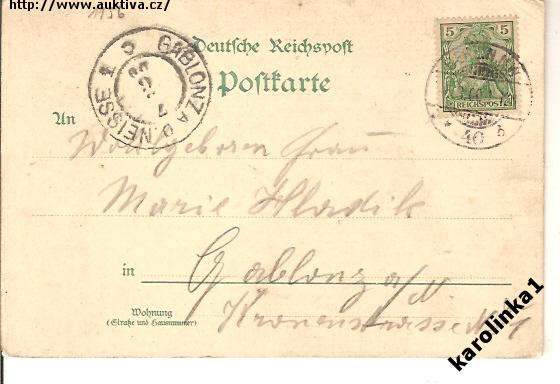 http://www.auktiva.cz/
1156
Deutsche Reichspost
Postkarte
GABLONZ A. NEISSE 1
5 5
REICHSPOST
40 b
An Wohlgeboren Frau
Marie Hladik
in Gablonz a/N
Wohnung
(Straße und Hausnummer)
Kronenstrasse No 1
karolinka1